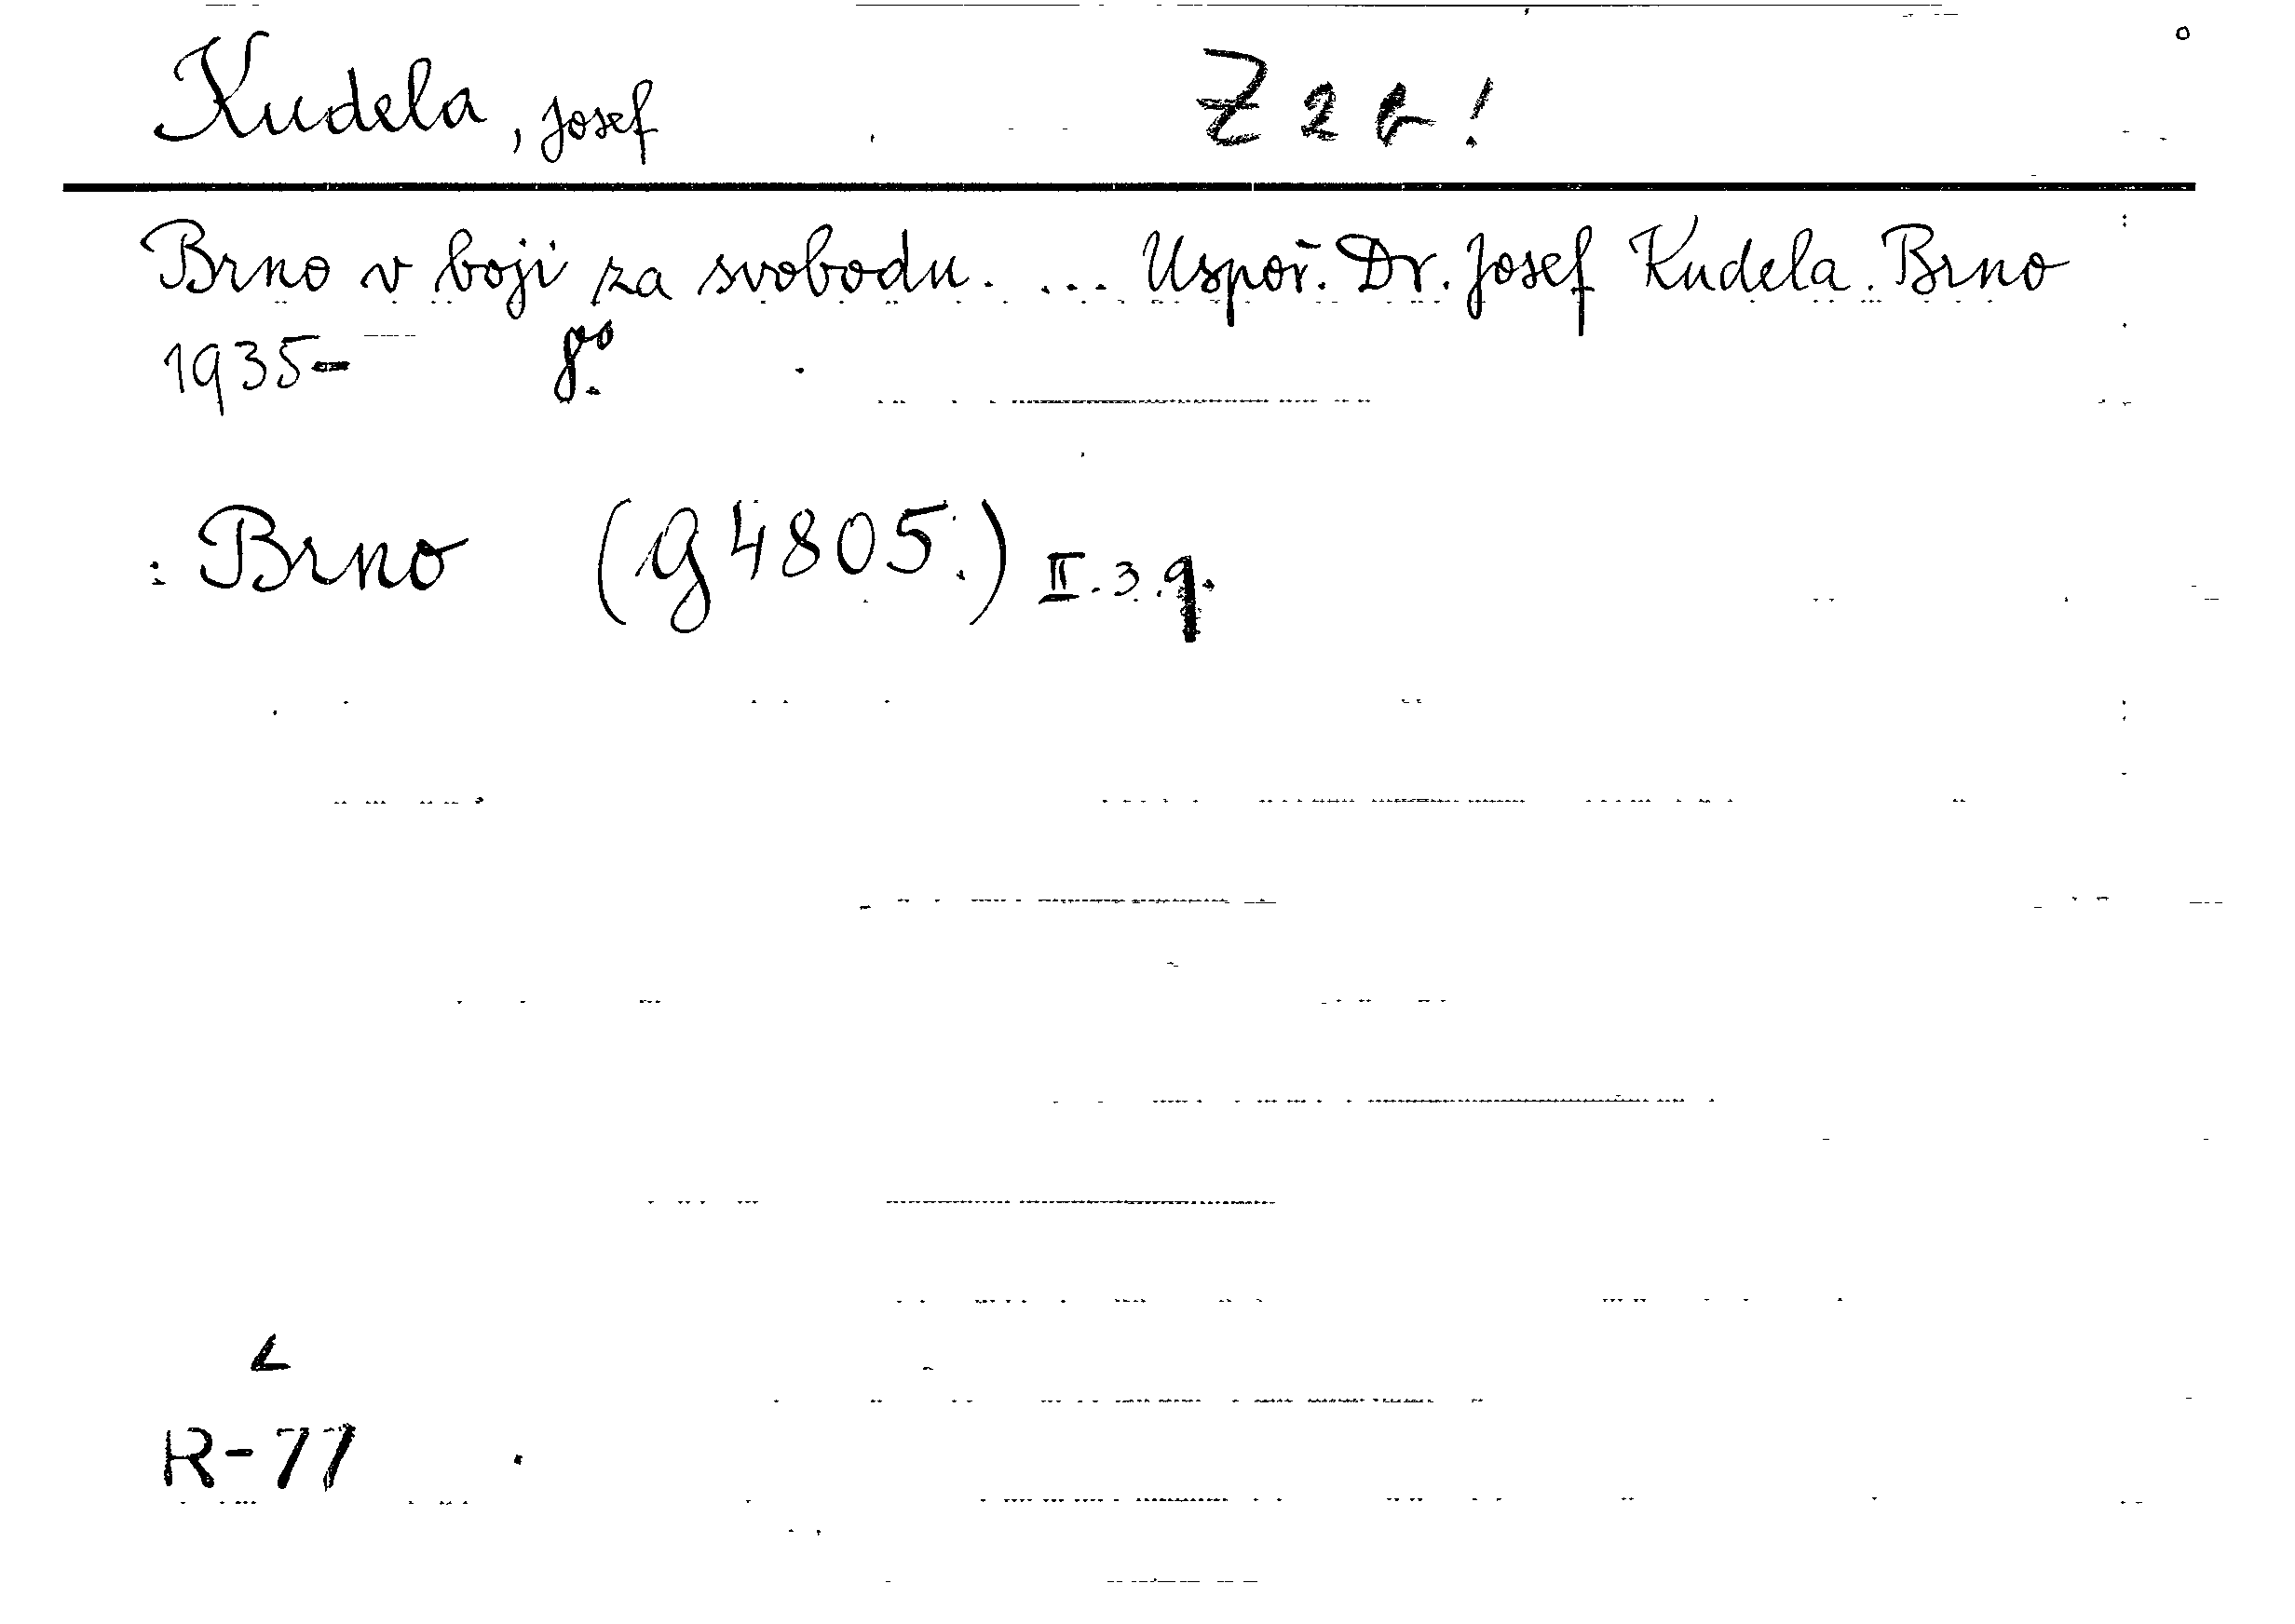 Kudela, Josef Z 2 b!
Brno v boji za svobodu. ... Uspoř. Dr. Josef Kudela. Brno
1935- 8°.
: Brno (g 4805.) II.3.q.
L
R-77